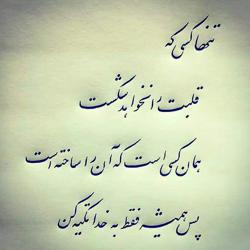 تنها کسی که
قلبت را نخواهد شکست
همان کسی است که آن را ساخته است
پس همیشه فقط به خدا تکیه کن